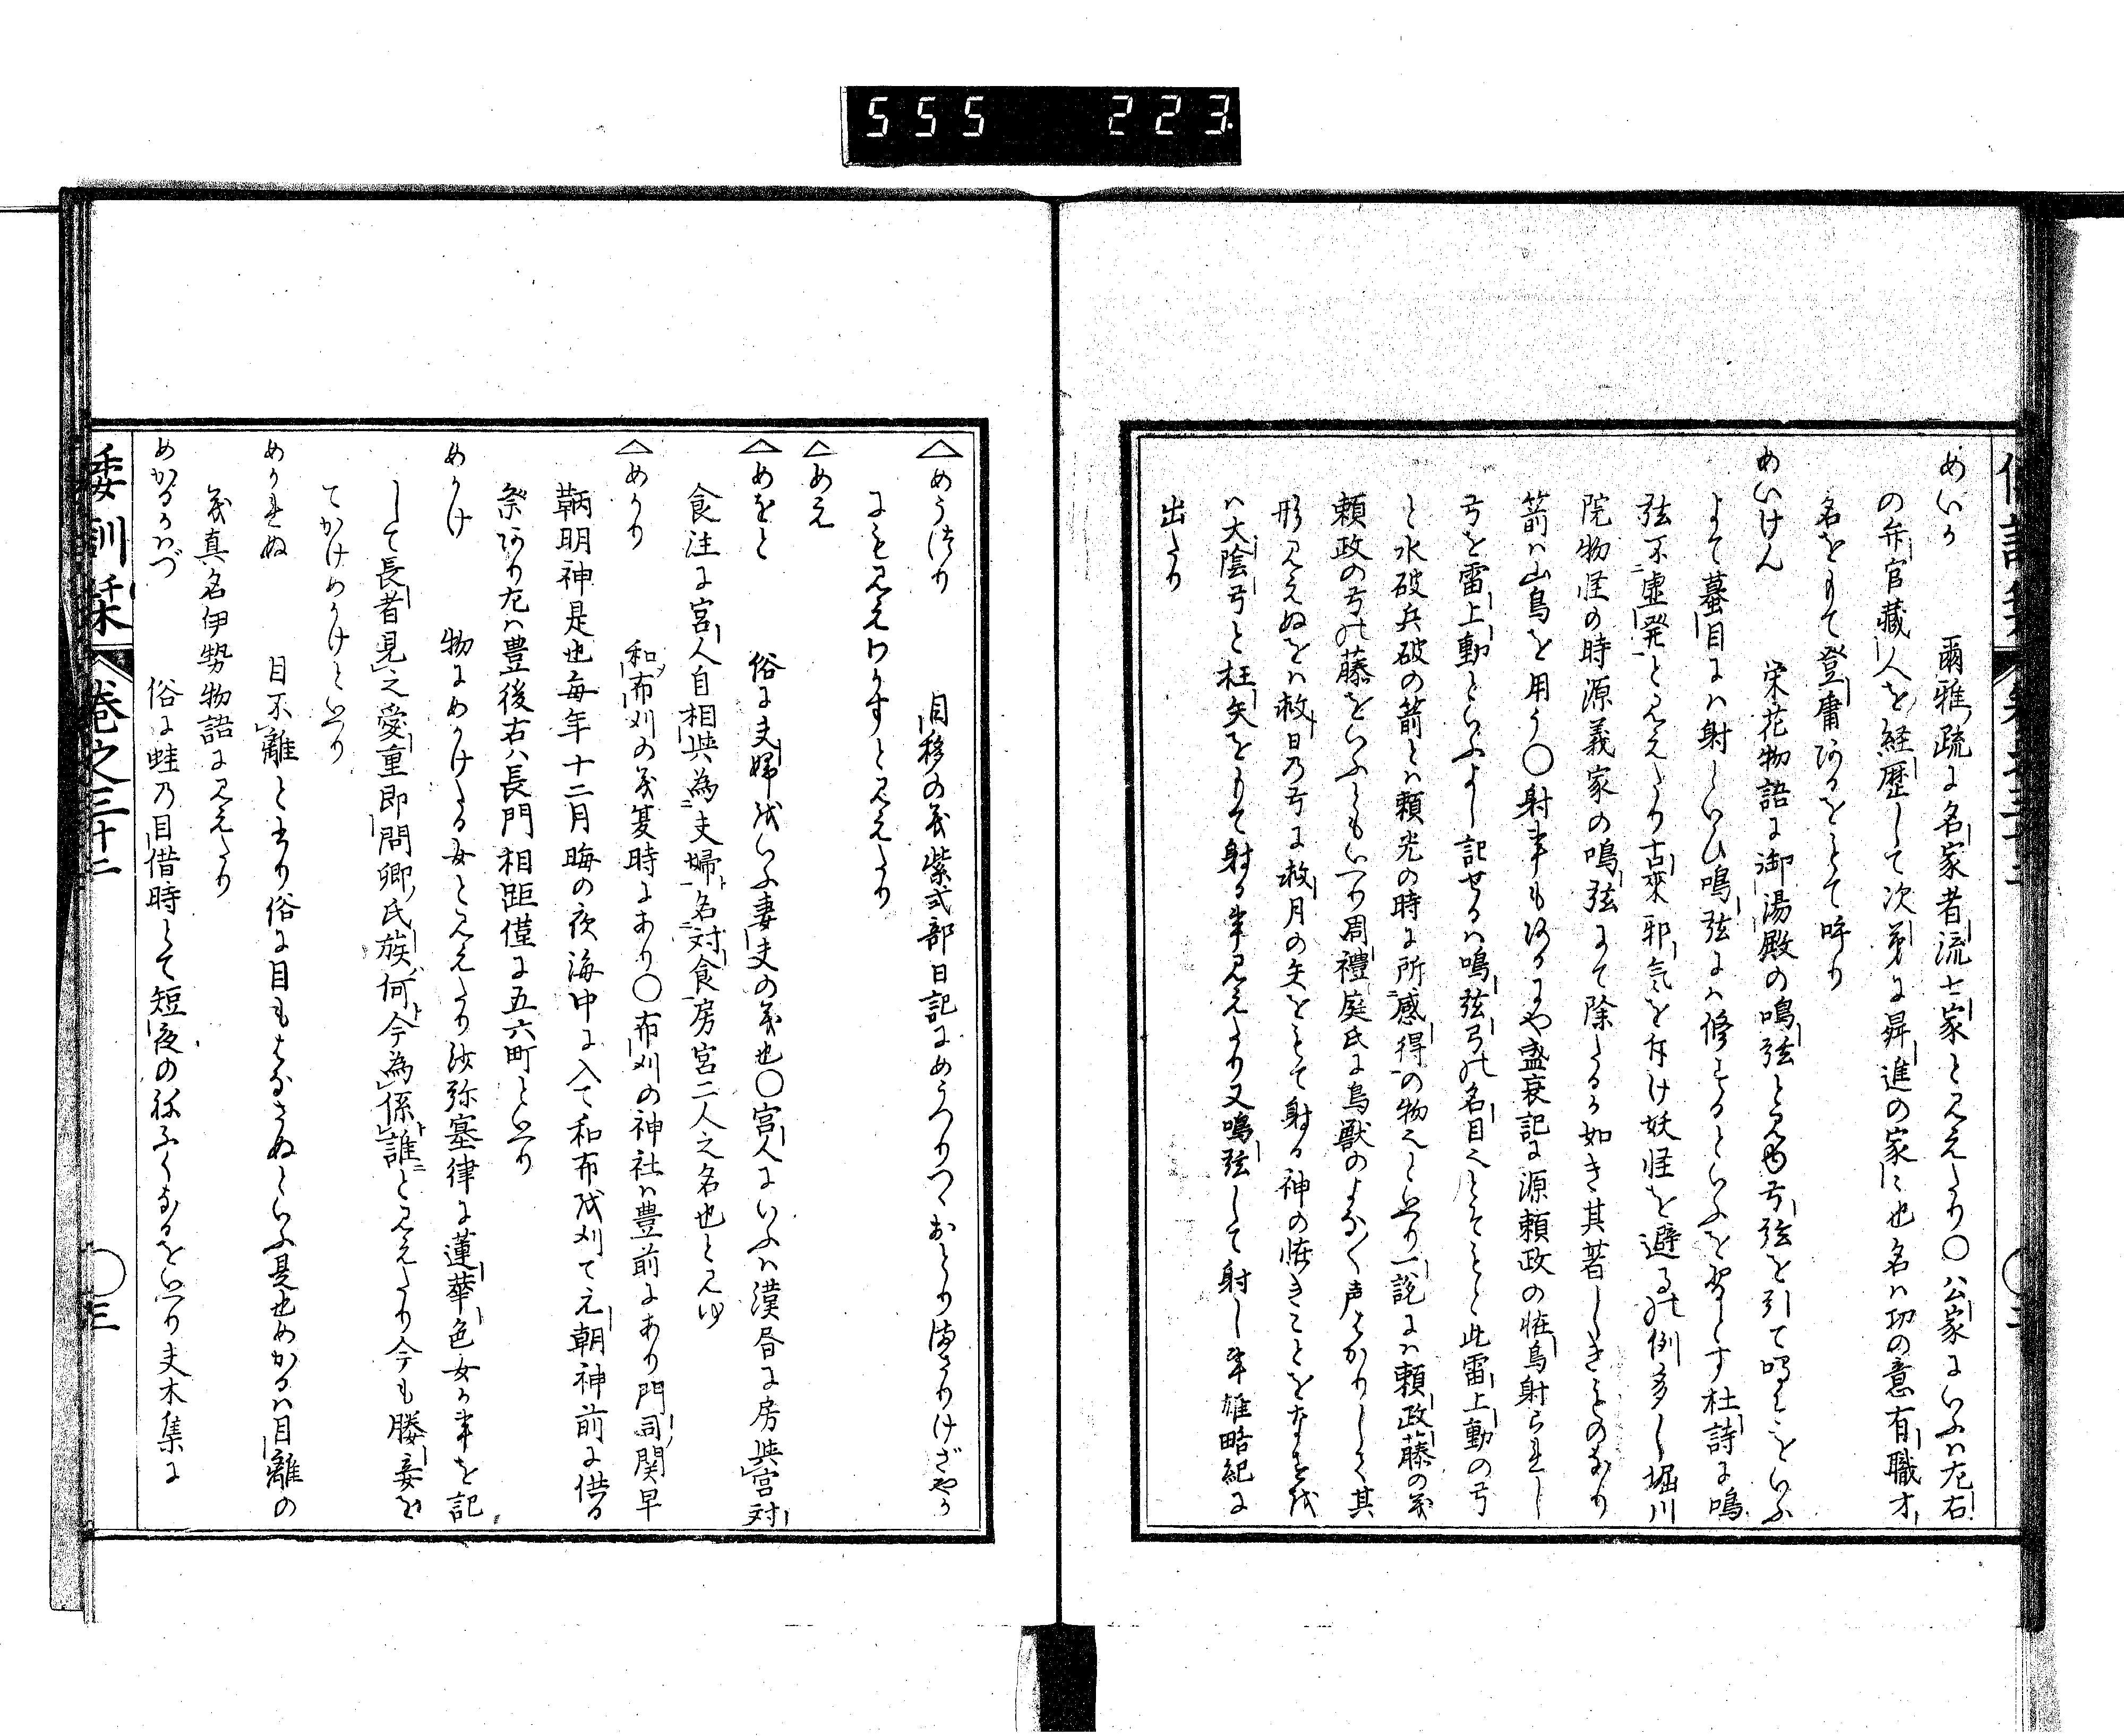 555 223
めいか 爾雅疏に名家者流七家と見えたり○公家にいふハ左右
の弁官蔵人を経歴して次第に昇進の家に也名ハ功の意有職才
名をもて登庸あるをもて呼り
めいけん 栄花物語に御湯殿の鳴弦と見ゆ弓弦を引て鳴すをいふ
よて蟇目にハ射といひ鳴弦にハ修するといふを習とす杜詩に鳴
弦不虚発と見えたり古来邪気を存け妖怪を避るの例多し堀川
院物怪の時源義家の鳴弦にて除たるか如き其著しきものなり
箭ハ山鳥を用う○射事もあるにや盛衰記に源頼政の恠鳥射られし
弓を雷上動といふよし記せるハ鳴弦弓の名目之とそもと此雷上動の弓
と水破兵破の箭とハ頼光の時に所感得の物之といへり一説にハ頼政藤の義
頼政の弓の藤をいふともいへり周禮庭氏に鳥獣のよなく声はかりして其
形見えぬをハ救日乃弓に救月の矢をもて射る神の恠きことをなすを
ハ大陰弓と枉矢をもて射る事見えたり又鳴弦して射し事雄略紀に
出たり
△めうつり 目移の義紫式部日記にめうつりつゝおとりまさりけざやか
にも見えわかすと見えたり
△めえ
△めをと 俗に夫婦をいふ妻夫の義也○宮人にいふハ漢昏に房與宮対
食注に宮人自相與為夫婦名対食房宮二人之名也と見ゆ
△めかり 和布刈の義夏時にあり○布刈の神社ハ豊前にあり門司関早
鞆明神是也毎年十二月晦の夜海中に入て和布を刈て元朝神前に供る
祭あり左ハ豊後右ハ長門相距僅に五六町といへり
めかけ 物にめかけたる女と見えたり沙弥塞律に蓮華色女か事を記
して長者見之愛重即問卿氏族何今為係誰と見えたり今も媵妾を
てかけめかけといへり
めかれぬ 目不離と書り俗に目もはなさぬといふ是也めかるハ目離の
義真名伊勢物語に見えたり
めかるかハづ 俗に蛙乃目借時とて短夜の ねふくなるをいへり夫木集に
委訓栞 巻之三十二 ○三